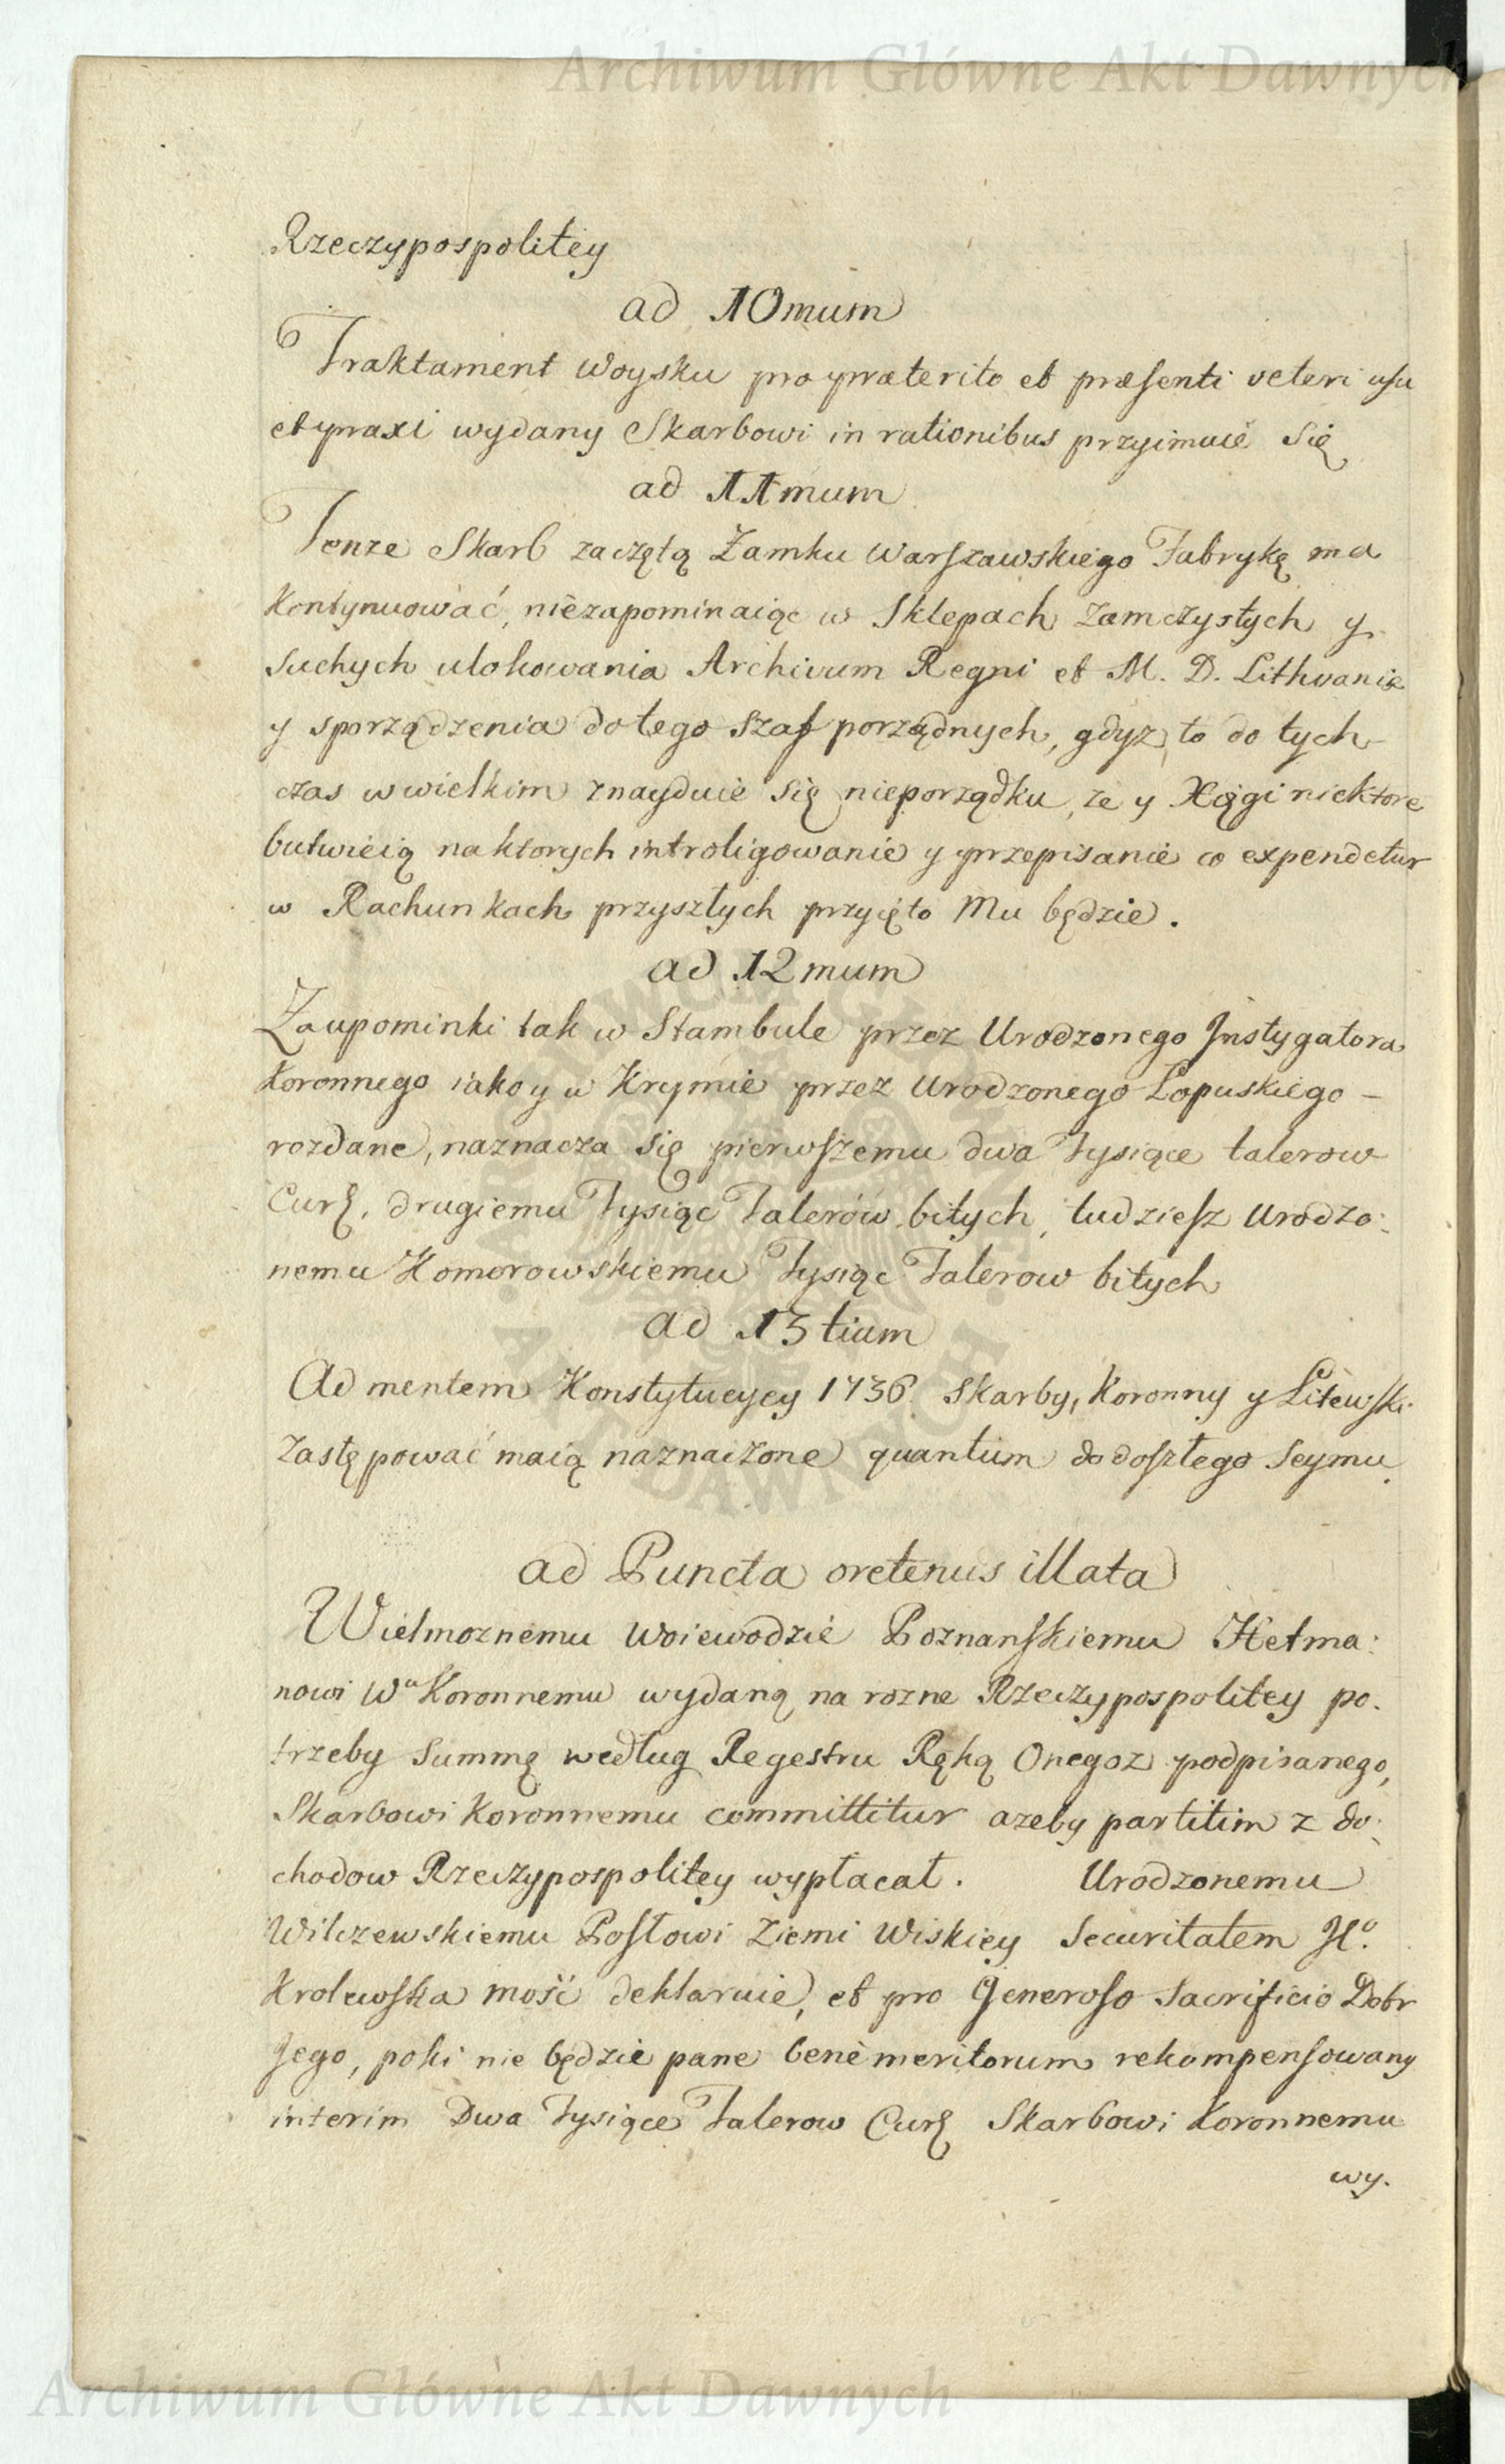 Archiwum Główne Akt Dawnych
Rzeczypospolitey
ad 10mum
Traktament Woysku pro præterito et præsenti veteri usu
et praxi wydany Skarbowi in rationibus przyimuie Się
ad 11mum
Tenze Skarb zaczętą Zamku Warszawskiego Fabrykę ma
Kontynuować, niezapominaiąc w Sklepach zamczystych y
Suchych ulokowania Archivum Regni et M. D. Lithvaniæ
y sporządzenia do tego Szaf porządnych, gdyz to do tych
czas w wielkim znayduie Się nieporządku, ze y Xięgi niektore
butwieią na ktorych introligowanie y przepisanie co expendetur
w Rachunkach przyszłych przyięto Mu będzie.
ad 12mum
Za upominki tak w Stambule przez Urodzonego Instygatora
Koronnego iako y w Krymie przez Urodzonego Łopuskiego –
rozdane, naznacza Się pierwszemu dwa Tysiące talerow
Curꝶ. drugiemu Tysiąc Talerów bitych, tudziesz Urodzo:
nemu Komorowskiemu Tysiąc Talerow bitych
ad 13tium
Ad mentem Konstytucycy 1736. Skarby, Koronny y Litewski
Zastępować maią naznaczone quantum do doszłego Seymu.
ad Puncta oretenus illata
Wielmoznemu Woiewodzie Poznanskiemu Hetma:
nowi Wu Koronnemu wydaną na rozne Rzeczypospolitey po.
trzeby Summę według Regestru Ręką Onegoz podpisanego,
Skarbowi Koronnemu committitur azeby partitim z do:
chodow Rzeczypospolitey wypłacał. Urodzonemu
Wilczewskiemu Posłowi Ziemi Wiskiey Securitatem Jo.
Krolewska mość deklaruie, et pro Generoso Sacrificio Dobr
Jego, poki nie będzie pane bene meritorum rekompensowany
interim Dwa Tysiące Talerow Curꝶ Skarbowi Koronnemu
wy.
Archiwum Główne Akt Dawnych